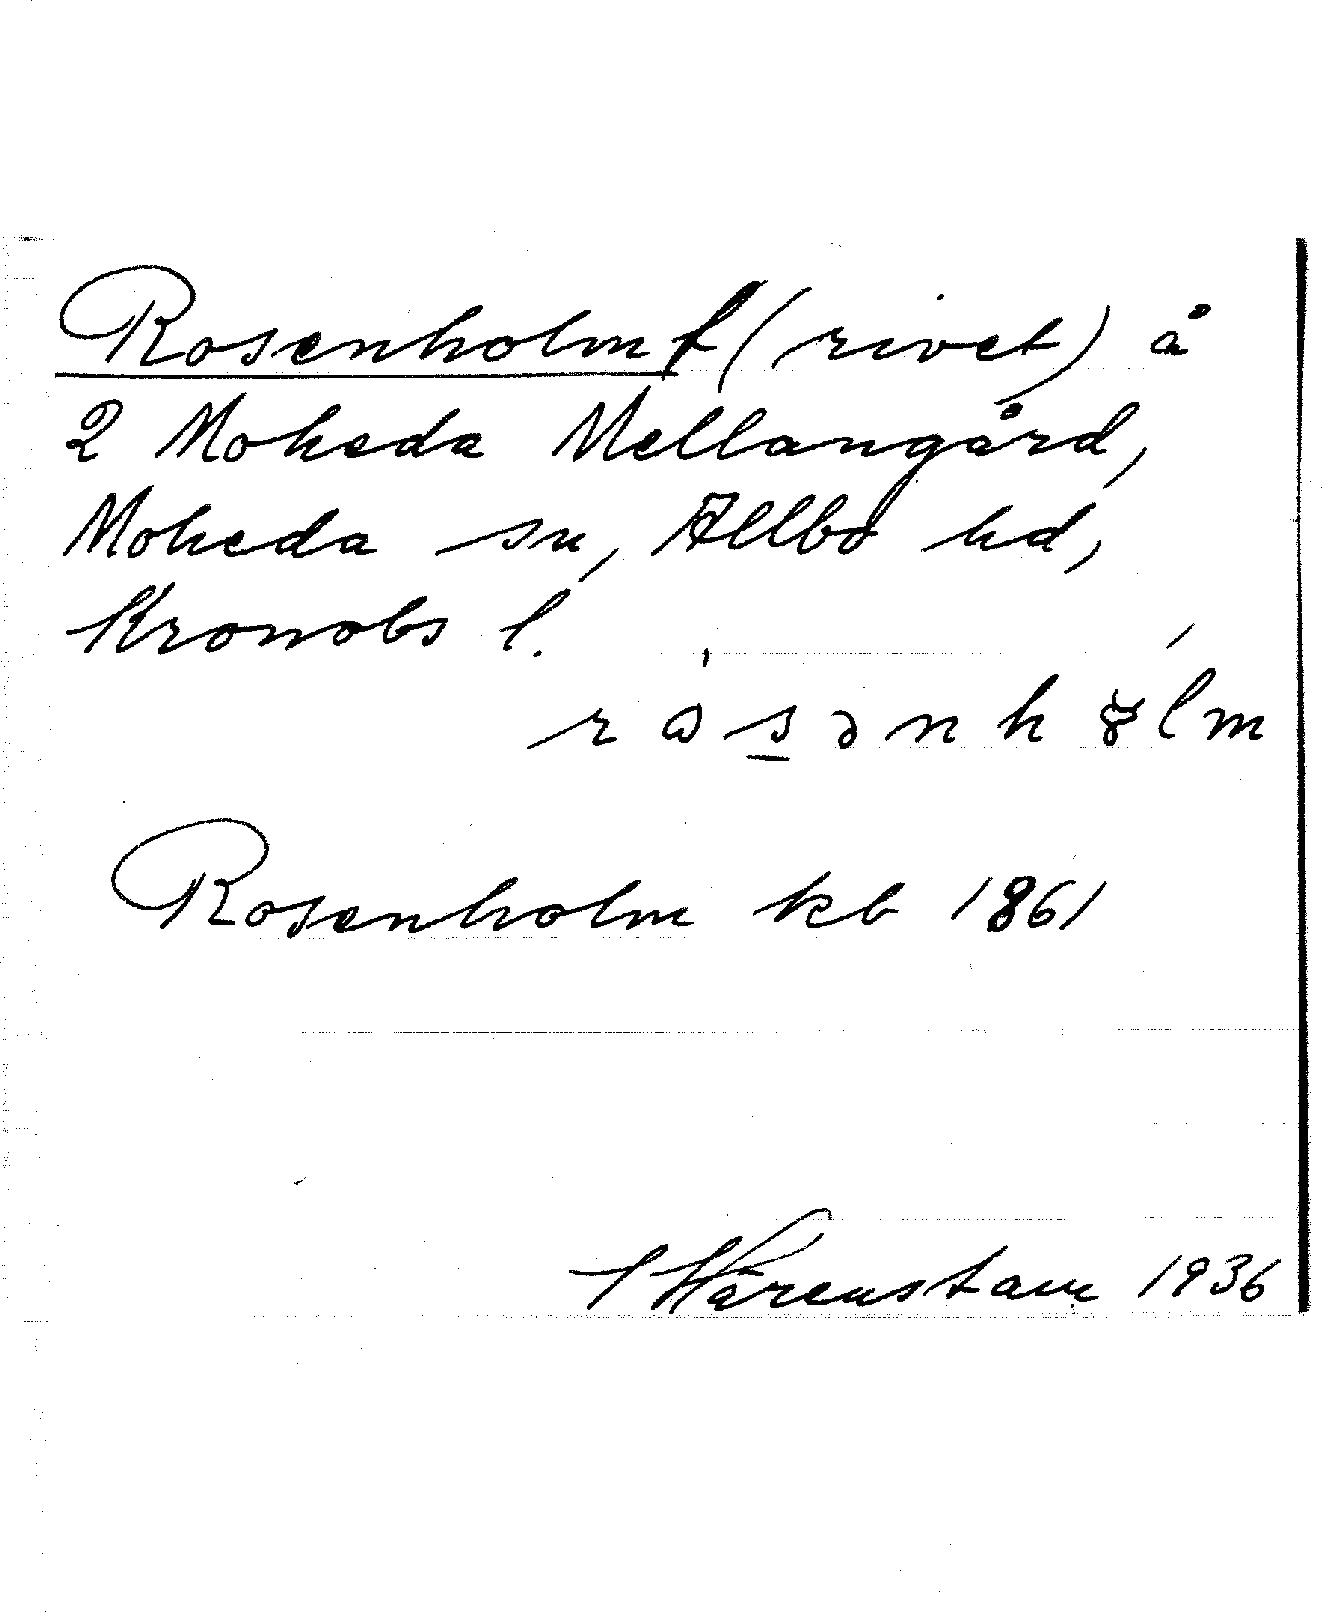 Rosenholm f (rivet) å
2 Moheda Mellangård,
Moheda sn, Allbo hd,
Kronobs l.
Rosenholm kb 1861
Härenstam 1936